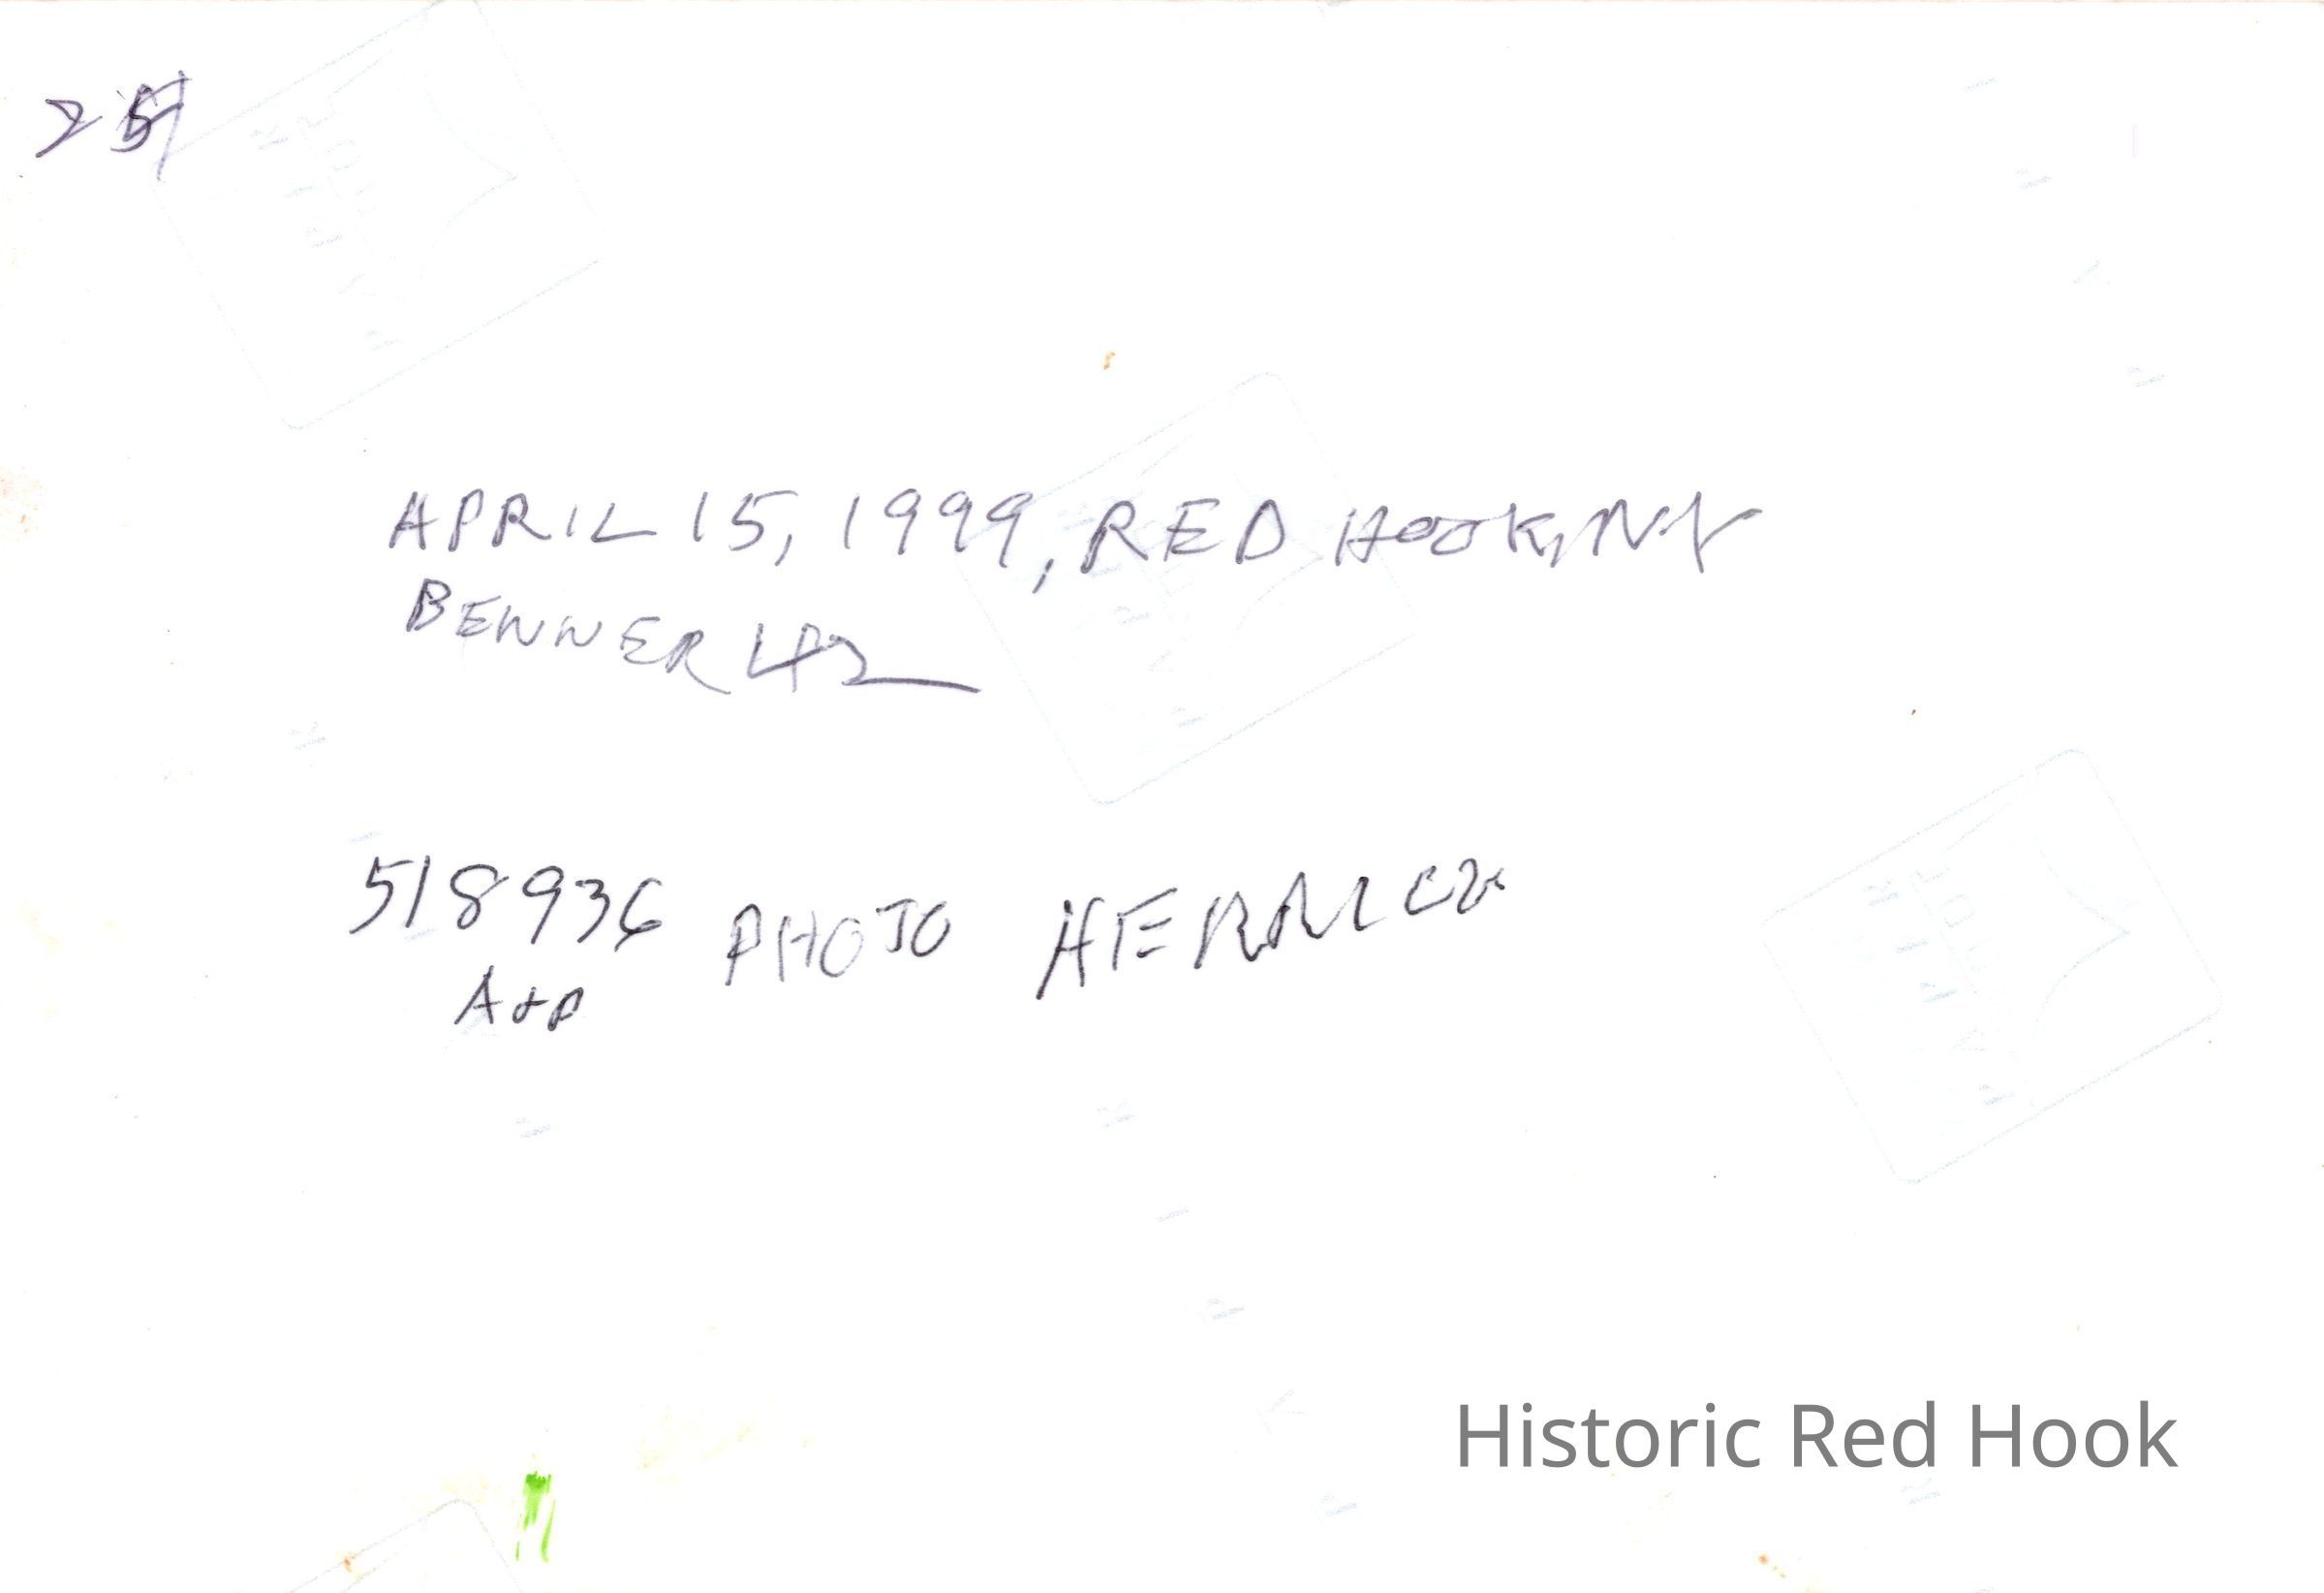 25
APRIL 15, 1999, RED HOOK, NY
BENNER
518936 PHOTO
A+P
Historic Red Hook